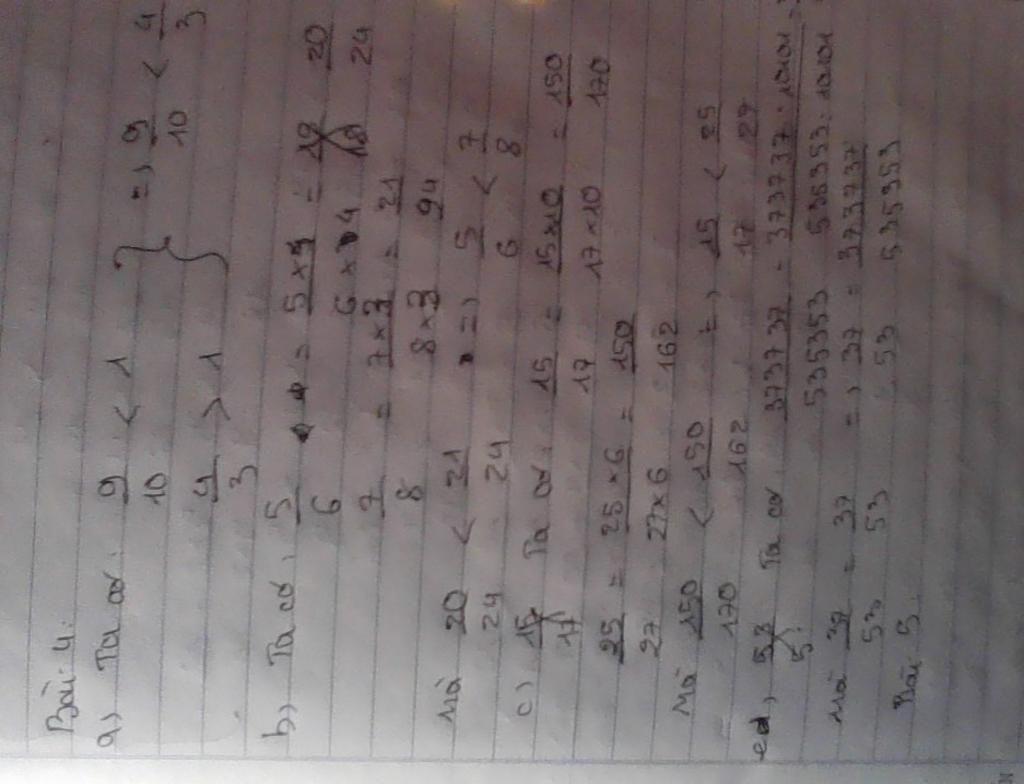 Bài 4:
a) Ta có: 9/10 < 1 } => 9/10 < 4/3
4/3 > 1
b) Ta có: 5/6 = 5×4/6×4 = 20/24
7/8 = 7×3/8×3 = 21/24
Mà 20/24 < 21/24 => 5/6 < 7/8
c) Ta có 15/17 = 15×10/17×10 = 150/170
25/27 = 25×6/27×6 = 150/162
Mà 150/170 < 150/162 => 15/17 < 25/27
d) Ta có 373737/535353 = 373737:10101/535353:10101
Mà 37/53 = 37/53 => 37/53 = 373737/535353
Bài 5.